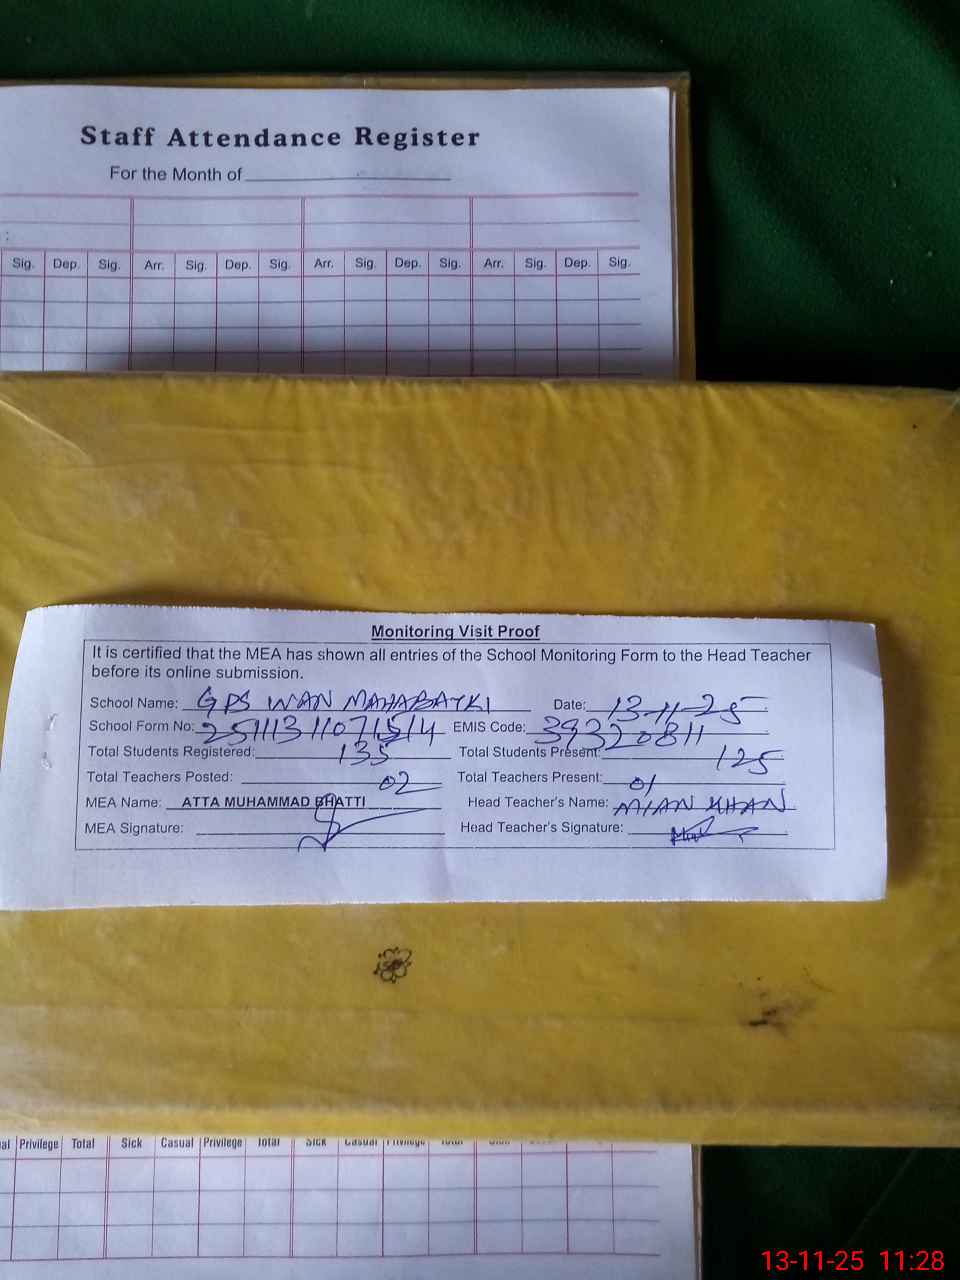 Staff Attendance Register
For the Month of
Sig. Dep. Sig. Arr. Sig. Dep. Sig. Arr. Sig. Dep. Sig. Arr. Sig. Dep. Sig.
Monitoring Visit Proof
It is certified that the MEA has shown all entries of the School Monitoring Form to the Head Teacher
before its online submission.
School Name: GPS WAN MAHABATKI Date: 13-11-25
School Form No: EMIS Code: 39320811
Total Students Registered: 135 Total Students Present: 125
Total Teachers Posted: 02 Total Teachers Present: 01
MEA Name: ATTA MUHAMMAD BHATTI Head Teacher's Name: MIAN KHAN
MEA Signature: Head Teacher's Signature:
Privilege Total Sick Casual Privilege Total Sick Casual Privilege Total
13-11-25 11:28